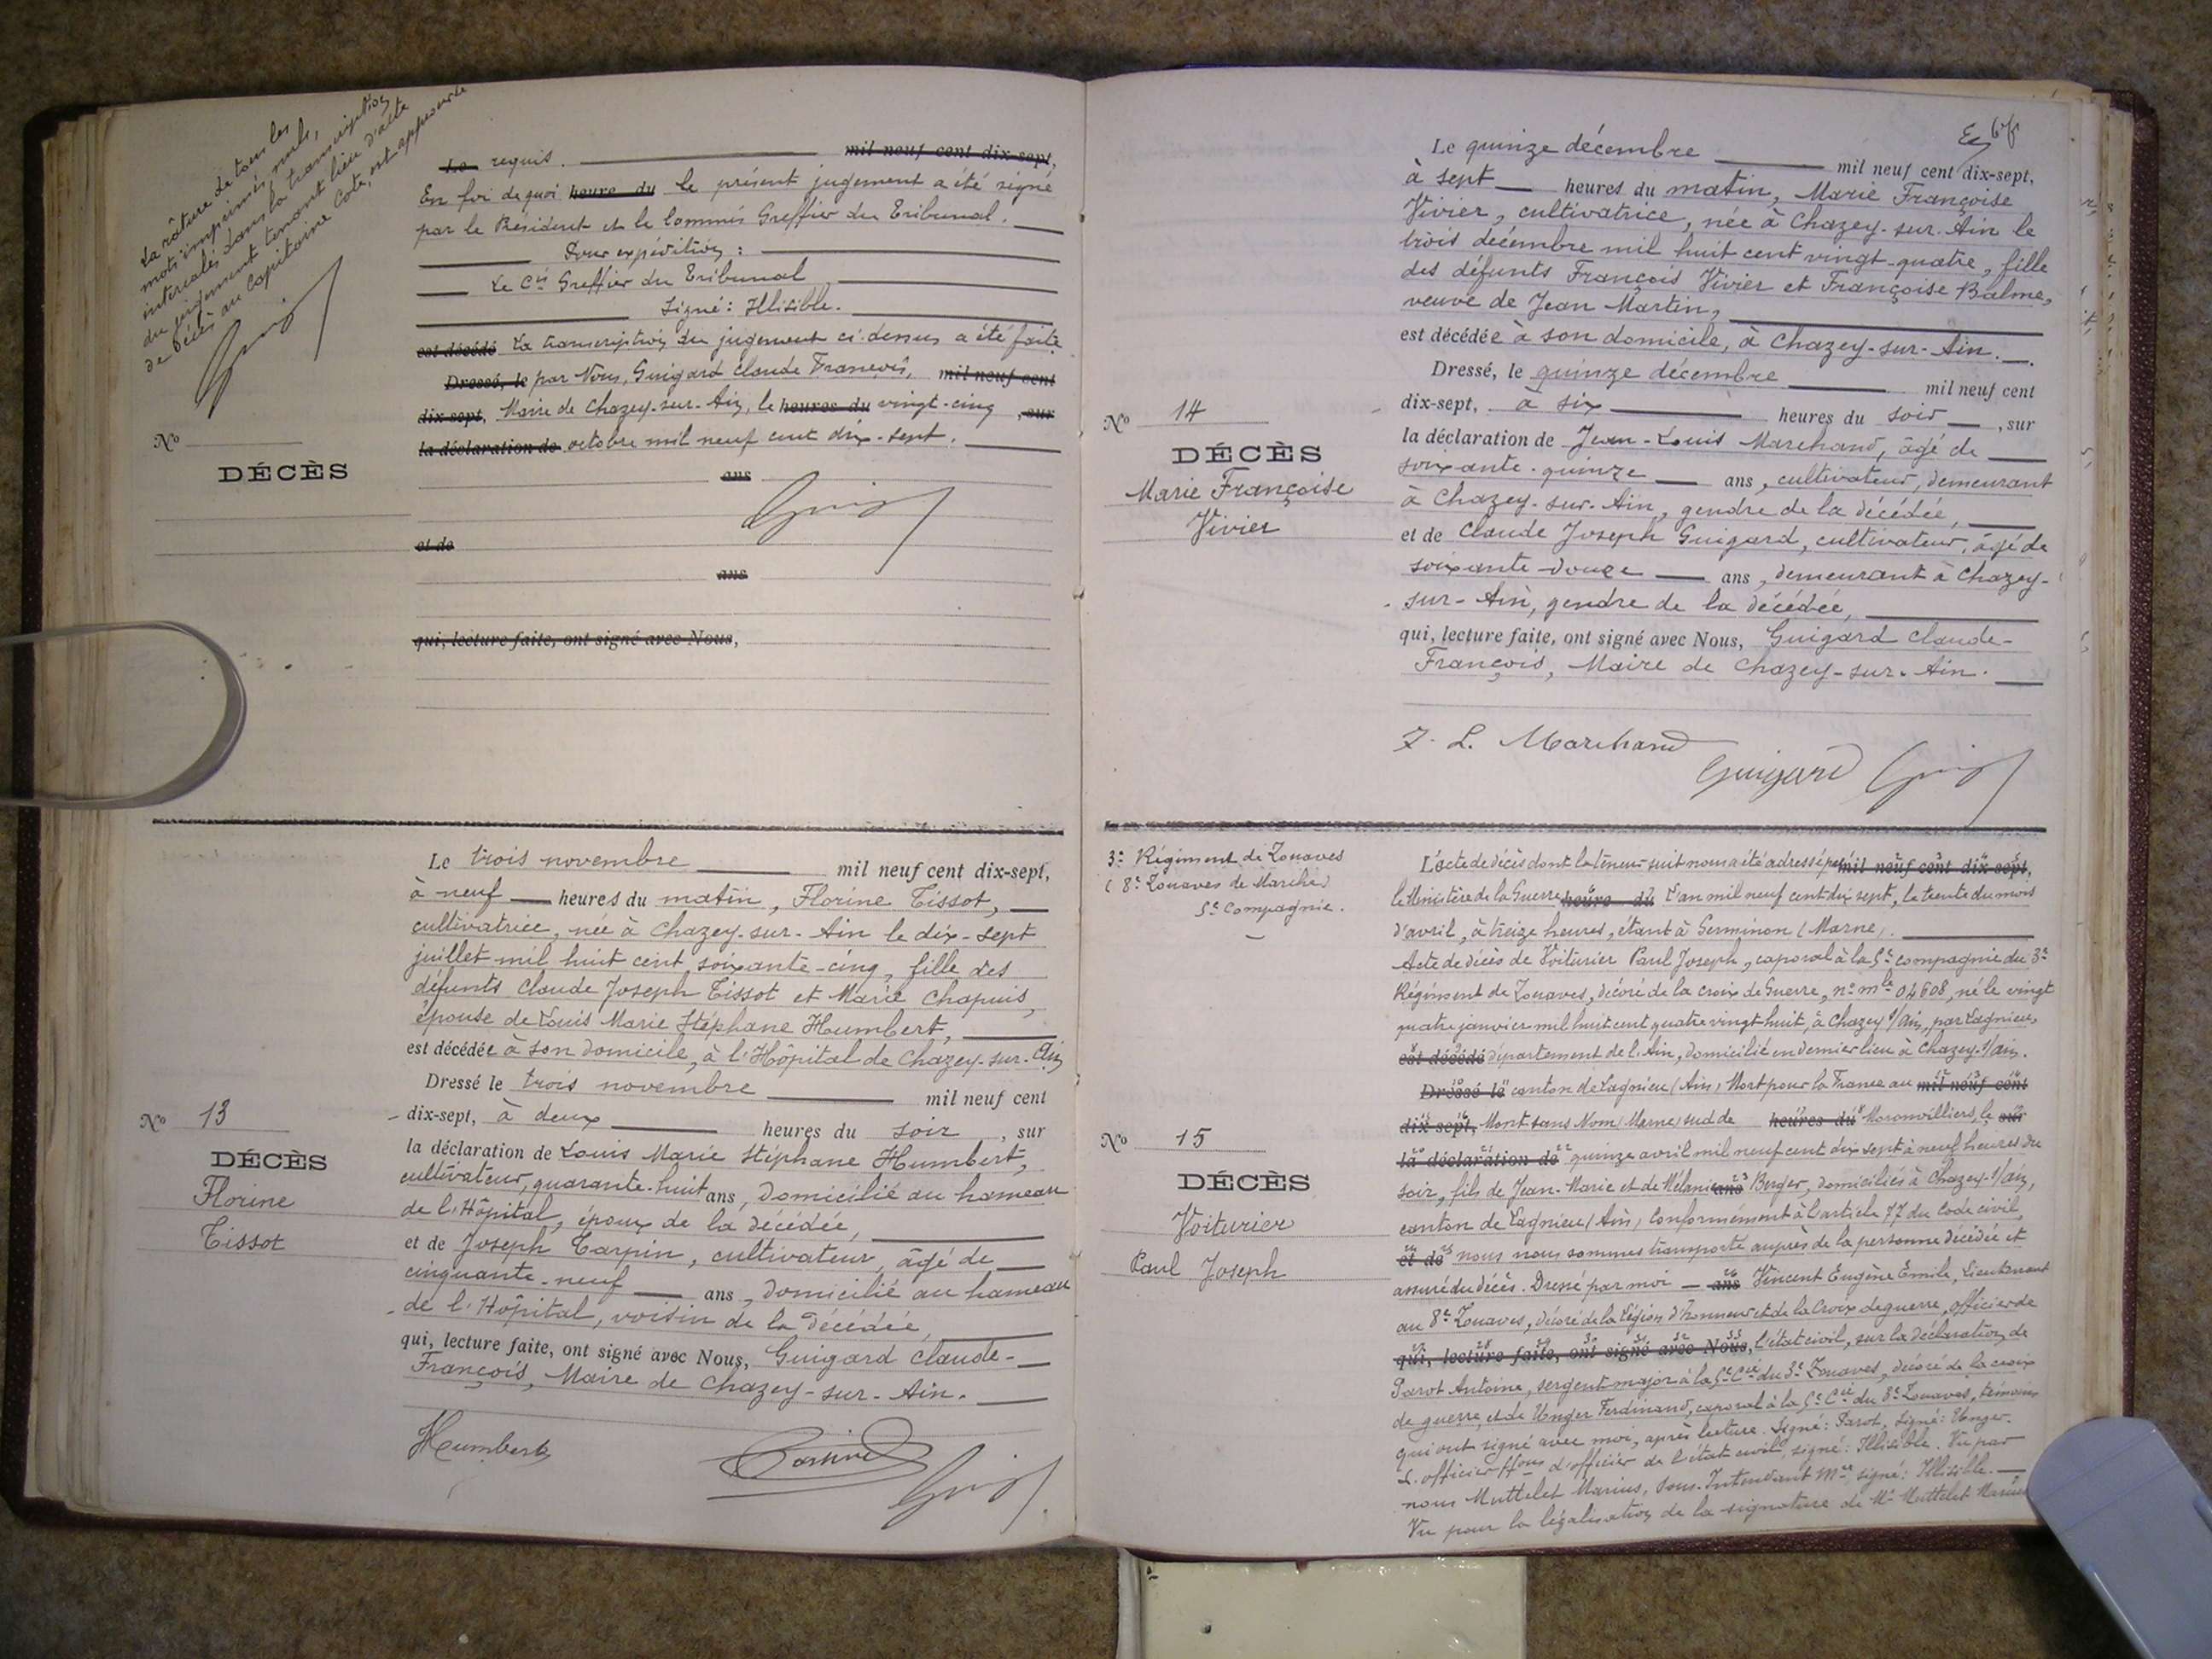 La râture de tous les
mots imprimés nuls,
intercalés dans la transcription
du jugement tenant lieu d'acte
de décès au Capitaine Cote, est approuvée
Nº
DÉCÈS
Le requis. mil neuf cent dix-sept,
En foi de quoi heure du le présent jugement a été signé
par le Président et le Commis Greffier du Tribunal.
Pour expédition :
Le Cis Greffier du Tribunal
Signé : Illisible.
est décédé La transcription du jugement ci-dessus a été faite
Dressé, le par Nous, Guigard Claude François, mil neuf cent
dix-sept, Maire de Chazey-sur-Ain, le heures du vingt-cinq , sur
la déclaration de octobre mil neuf cent dix-sept.
ans
et de
ans
qui, lecture faite, ont signé avec Nous,
Nº 13
DÉCÈS
Florine
Tissot
Le trois novembre mil neuf cent dix-sept,
à neuf heures du matin, Florine Tissot,
cultivatrice, née à Chazey-sur-Ain le dix-sept
juillet mil huit cent soixante-cinq, fille des
défunts Claude Joseph Tissot et Marie Chapuis,
épouse de Louis Marie Stéphane Humbert,
est décédée à son domicile, à l'Hôpital de Chazey-sur-Ain
Dressé le trois novembre mil neuf cent
dix-sept, à deux heures du soir , sur
la déclaration de Louis Marie Stéphane Humbert,
cultivateur, quarante-huit ans, domicilié au hameau
de l'Hôpital, époux de la décédée,
et de Joseph Carpin, cultivateur, âgé de
cinquante-neuf ans, domicilié au hameau
de l'Hôpital, voisin de la décédée,
qui, lecture faite, ont signé avec Nous, Guigard Claude-
François, Maire de Chazey-sur-Ain.
Humbert
Nº 14
DÉCÈS
Marie Françoise
Vivier
Le quinze décembre mil neuf cent dix-sept,
à sept heures du matin, Marie Françoise
Vivier, cultivatrice, née à Chazey-sur-Ain le
trois décembre mil huit cent vingt-quatre, fille
des défunts François Vivier et Françoise Balme,
veuve de Jean Martin,
est décédée à son domicile, à Chazey-sur-Ain.
Dressé, le quinze décembre mil neuf cent
dix-sept, à six heures du soir , sur
la déclaration de Jean-Louis Marchand, âgé de
soixante-quinze ans, cultivateur, demeurant
à Chazey-sur-Ain, gendre de la décédée,
et de Claude Joseph Guigard, cultivateur, âgé de
soixante-douze ans, demeurant à Chazey-
sur-Ain, gendre de la décédée,
qui, lecture faite, ont signé avec Nous, Guigard Claude-
François, Maire de Chazey-sur-Ain.
J. L. Marchand
Guigard
3e Régiment de Zouaves
(8e Zouaves de Marche)
5e Compagnie.
Nº 15
DÉCÈS
Voiturier
Paul Joseph
L'acte de décès dont la teneur suit nous a été adressé par mil neuf cent dix-sept,
le Ministère de la Guerre heure du L'an mil neuf cent dix sept, le trente du mois
d'avril, à treize heures, étant à Germinon (Marne).
Acte de décès de Voiturier Paul Joseph, caporal à la 5e compagnie du 3e
Régiment de Zouaves, décoré de la croix de Guerre, no mle 04608, né le vingt
quatre janvier mil huit cent quatre vingt huit, à Chazey s/Ain, par Lagnieu,
est décédé département de l'Ain, domicilié en dernier lieu à Chazey-s/Ain.
Dressé le canton de Lagnieu (Ain) Mort pour la France au mil neuf cent
dix sept, Mont sans Nom (Marne) sud de heures du Moronvilliers, le sur
la déclaration de quinze avril mil neuf cent dix sept à neuf heures du
soir, fils de Jean-Marie et de Mélanie ans Berger, domiciliés à Chazey-s/Ain,
canton de Lagnieu (Ain) Conformément à l'article 77 du Code civil,
et de nous nous sommes transporté auprès de la personne décédée et
assuré du décès. Dressé par moi ans Vincent Eugène Émile, Lieutenant
au 8e Zouaves, décoré de la Légion d'honneur et de la Croix de guerre, officier de
qui, lecture faite, ont signé avec Nous, l'état civil, sur la déclaration de
Parot Antoine, sergent major à la 5e Cie du 3e Zouaves, décoré de la croix
de guerre, et de Unger Ferdinand, caporal à la 5e Cie du 8e Zouaves, témoins
qui ont signé avec moi, après lecture. Signé : Parot, Signé : Unger.
L'officier d'officier de l'état civil, signé : Illisible. Vu par
nous Muttelet Marius, Sous-Intendant Mre, signé : Illisible.
Vu pour la légalisation de la signature de Mr Muttelet Marius